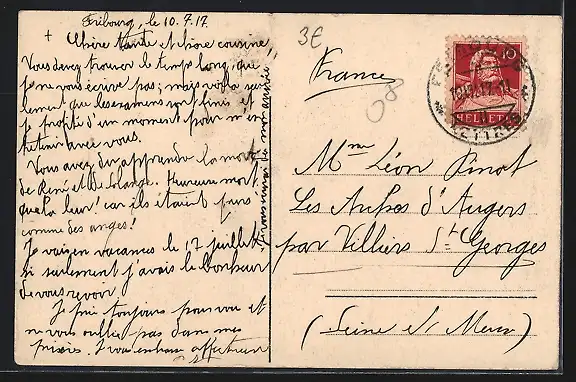 Fribourg, le 10.7.17.
+ Chère tante et chère cousine,
Vous devez trouver le temps long, que
je ne vous écrive pas; mais voilà seu-
lement que les examens sont finis et
je profite d'un moment pour m'en-
tretenir avec vous.
Vous avez dû apprendre la mort
de René et de Solange. Heureuse mort
que la leur! car ils étaient purs
comme des anges!
Je vais en vacances le 17 juillet
si seulement j'avais le bonheur
de vous revoir
Je prie toujours pour vous et
ne vous oublie pas dans mes
prières. Je vous embrasse affectueu
3€
France
08
HELVETIA
LETTRES
Mme Léon Pinot
Les Ambres d'Angers
par Villiers St Georges
(Seine et Marne)